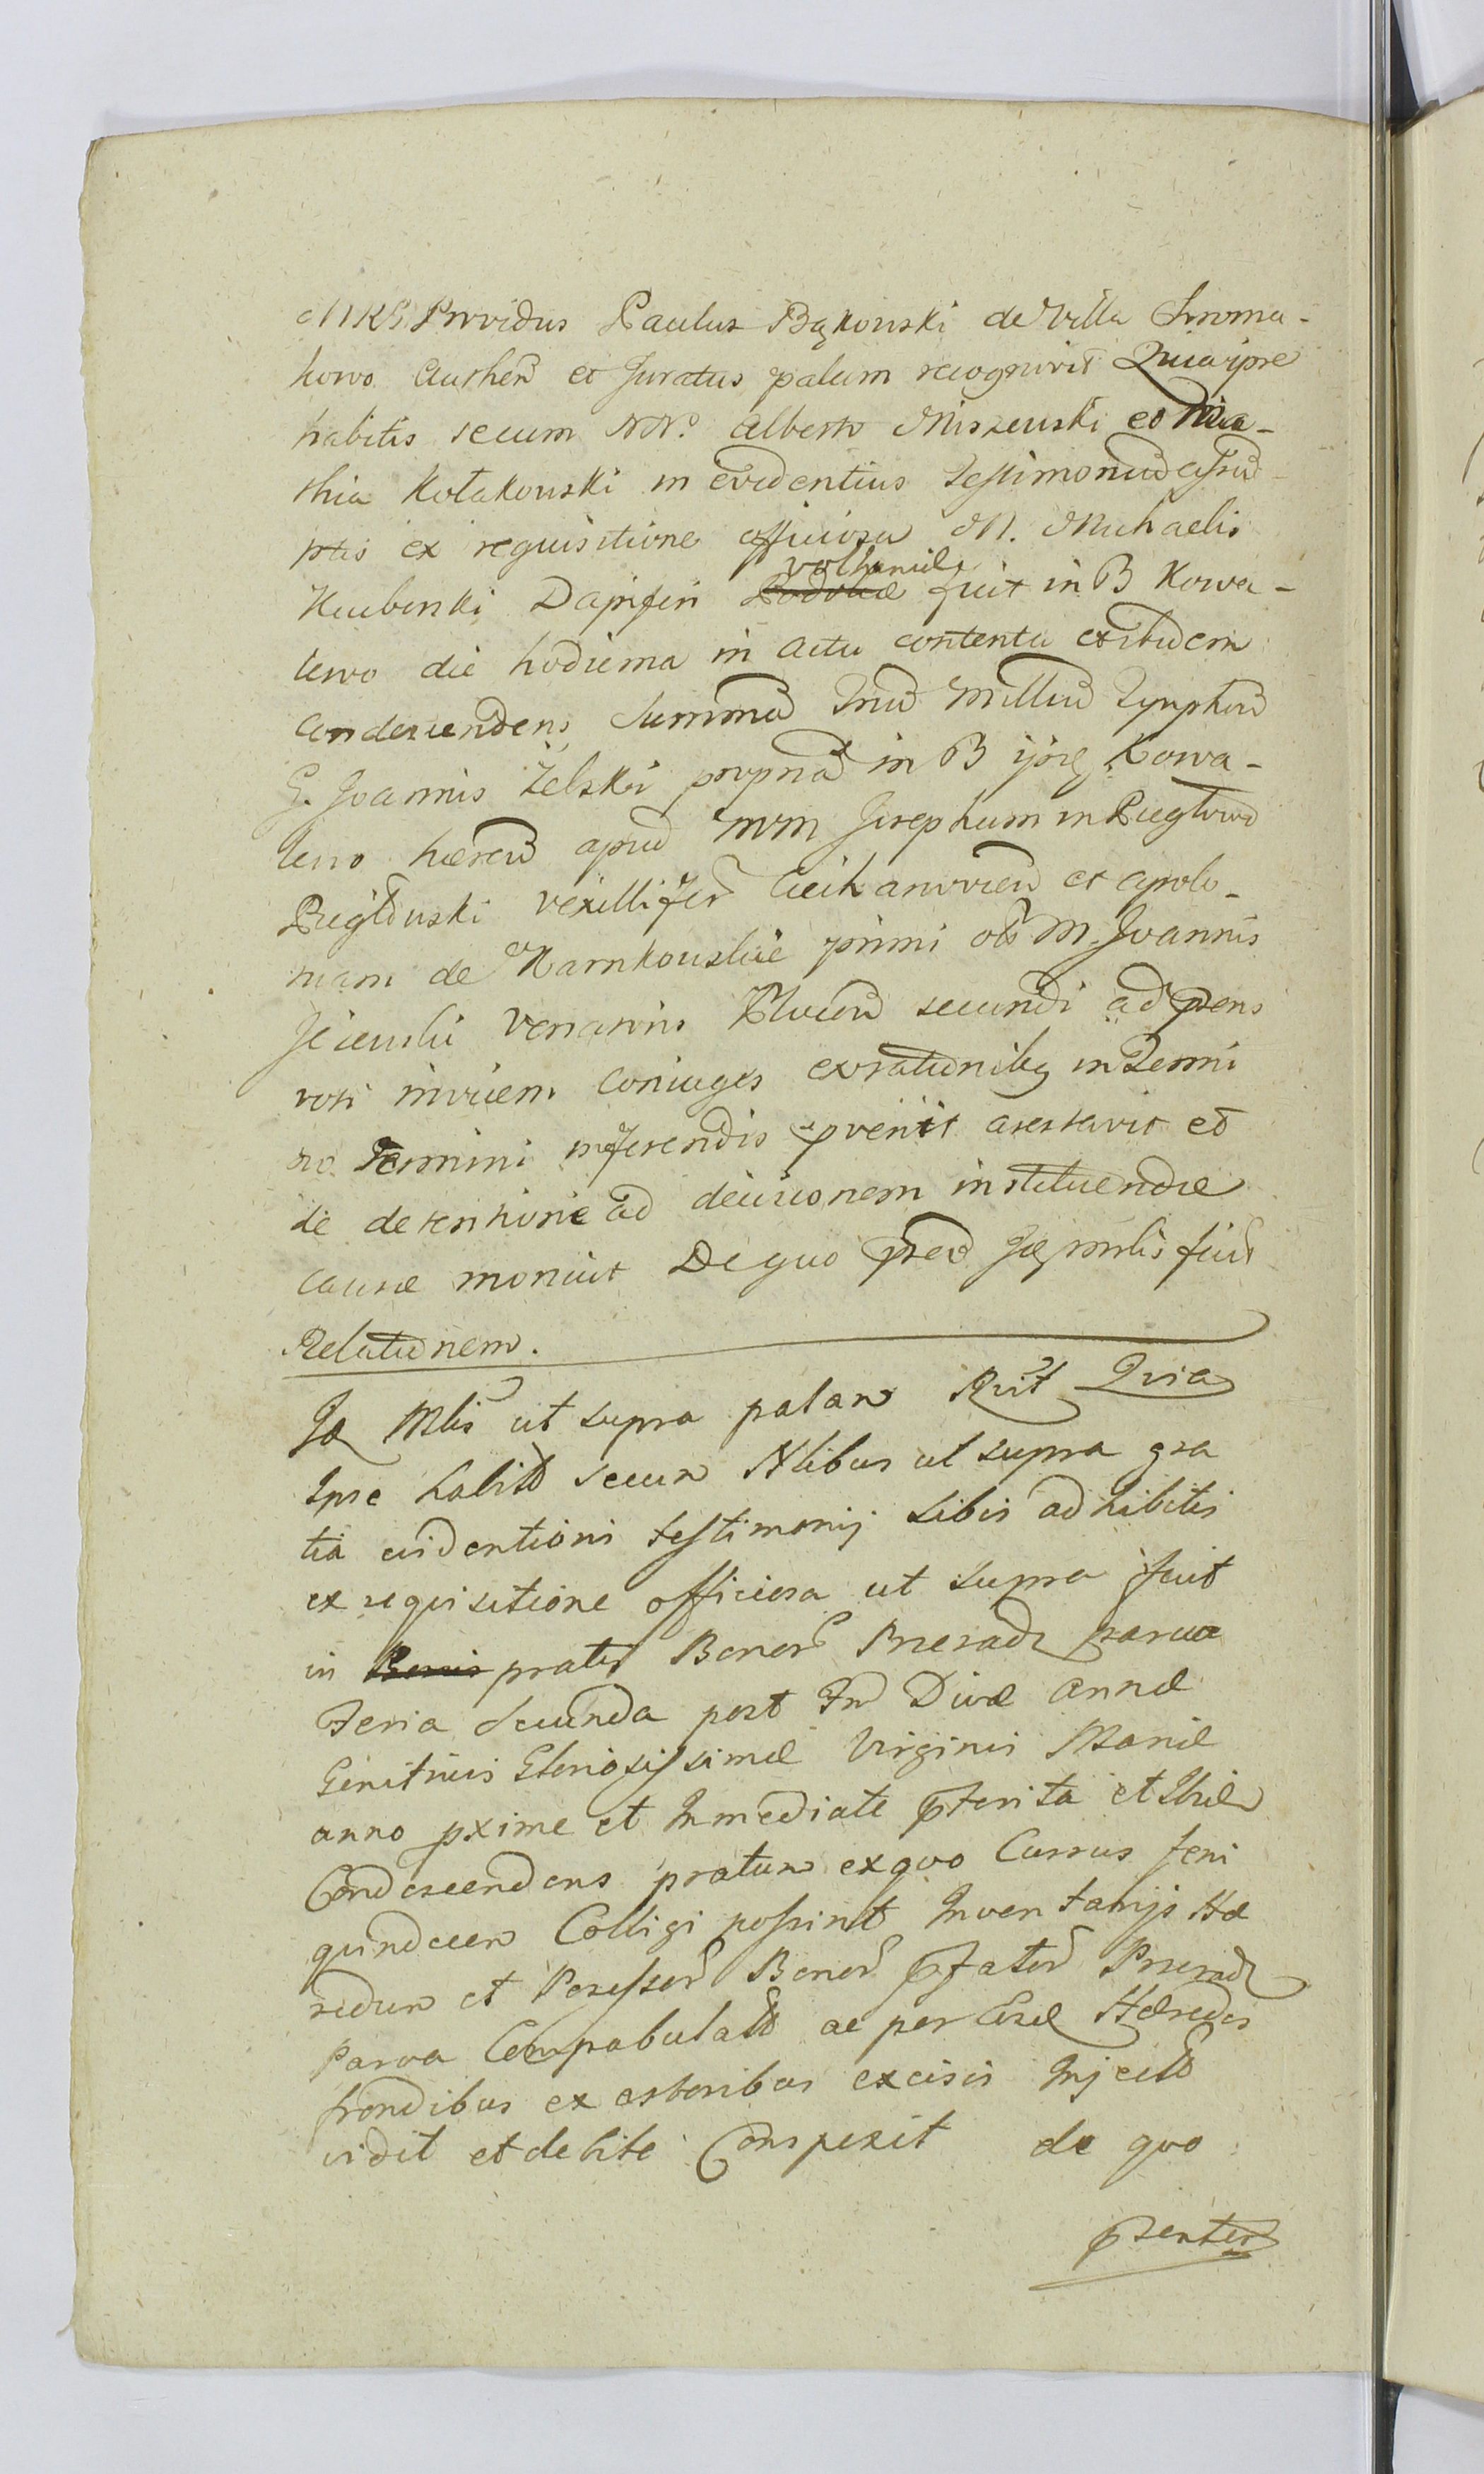 MRG Providus Paulus Bąkowski de Villa
kowo Authen et Juratus palam recognovit Quia ipse
habitis secum NN. Alberto Miszewski et Ma-
thia Kołakowski in evidentius Testimoniu assu
ptis ex requisitione officiosa M. Michaelis
Kubinski Dapiferi Podoliæ Volhaniæ fuit in B Kowa-
lewo die hodierna in actu contenta et ibidem
condescendens summam Triu Milliu Tynphoru
G. Joannis Zelski propria in B ijsq Kowa-
lewo hæren apud MM Josephum in
vexilliferu Ciechanovien et Apolo-
niam de Karnkowskie primi olim M. Joannis
Venatoris Plocen secundi ad præns
voti invicem coniuges ex rationibq in Termi
no Termini inferendis prænit arestavit et
de detentione ad decisionem instituendæ
causæ monuit De quo præd Jq mlis fecit
Relationem.
Jq Mlis ut supra palam Rvit Quia
Ipse habit secum Nlibus ut supra gra
tia evidentioris testimonij sibis adhibitis
ex requisitione officiosa ut supra fuit
in Bonis prato Bonor Przerad parva
Feria Secunda post Fm Divæ Annæ
Genitricis Gloriosissimæ Virginis Mariæ
anno pxime et Immediate pterita et Ibid
Condescendens pratum ex quo Currus feni
quindecem Colligi possint Inventarijs Hæ
redum et Possessor Bonor pfator Przerad
Parva Compabulatt ac per Hæredes
frondibus ex arboribus excisis Injectt
vidit et debite Conspexit de quo
psentes